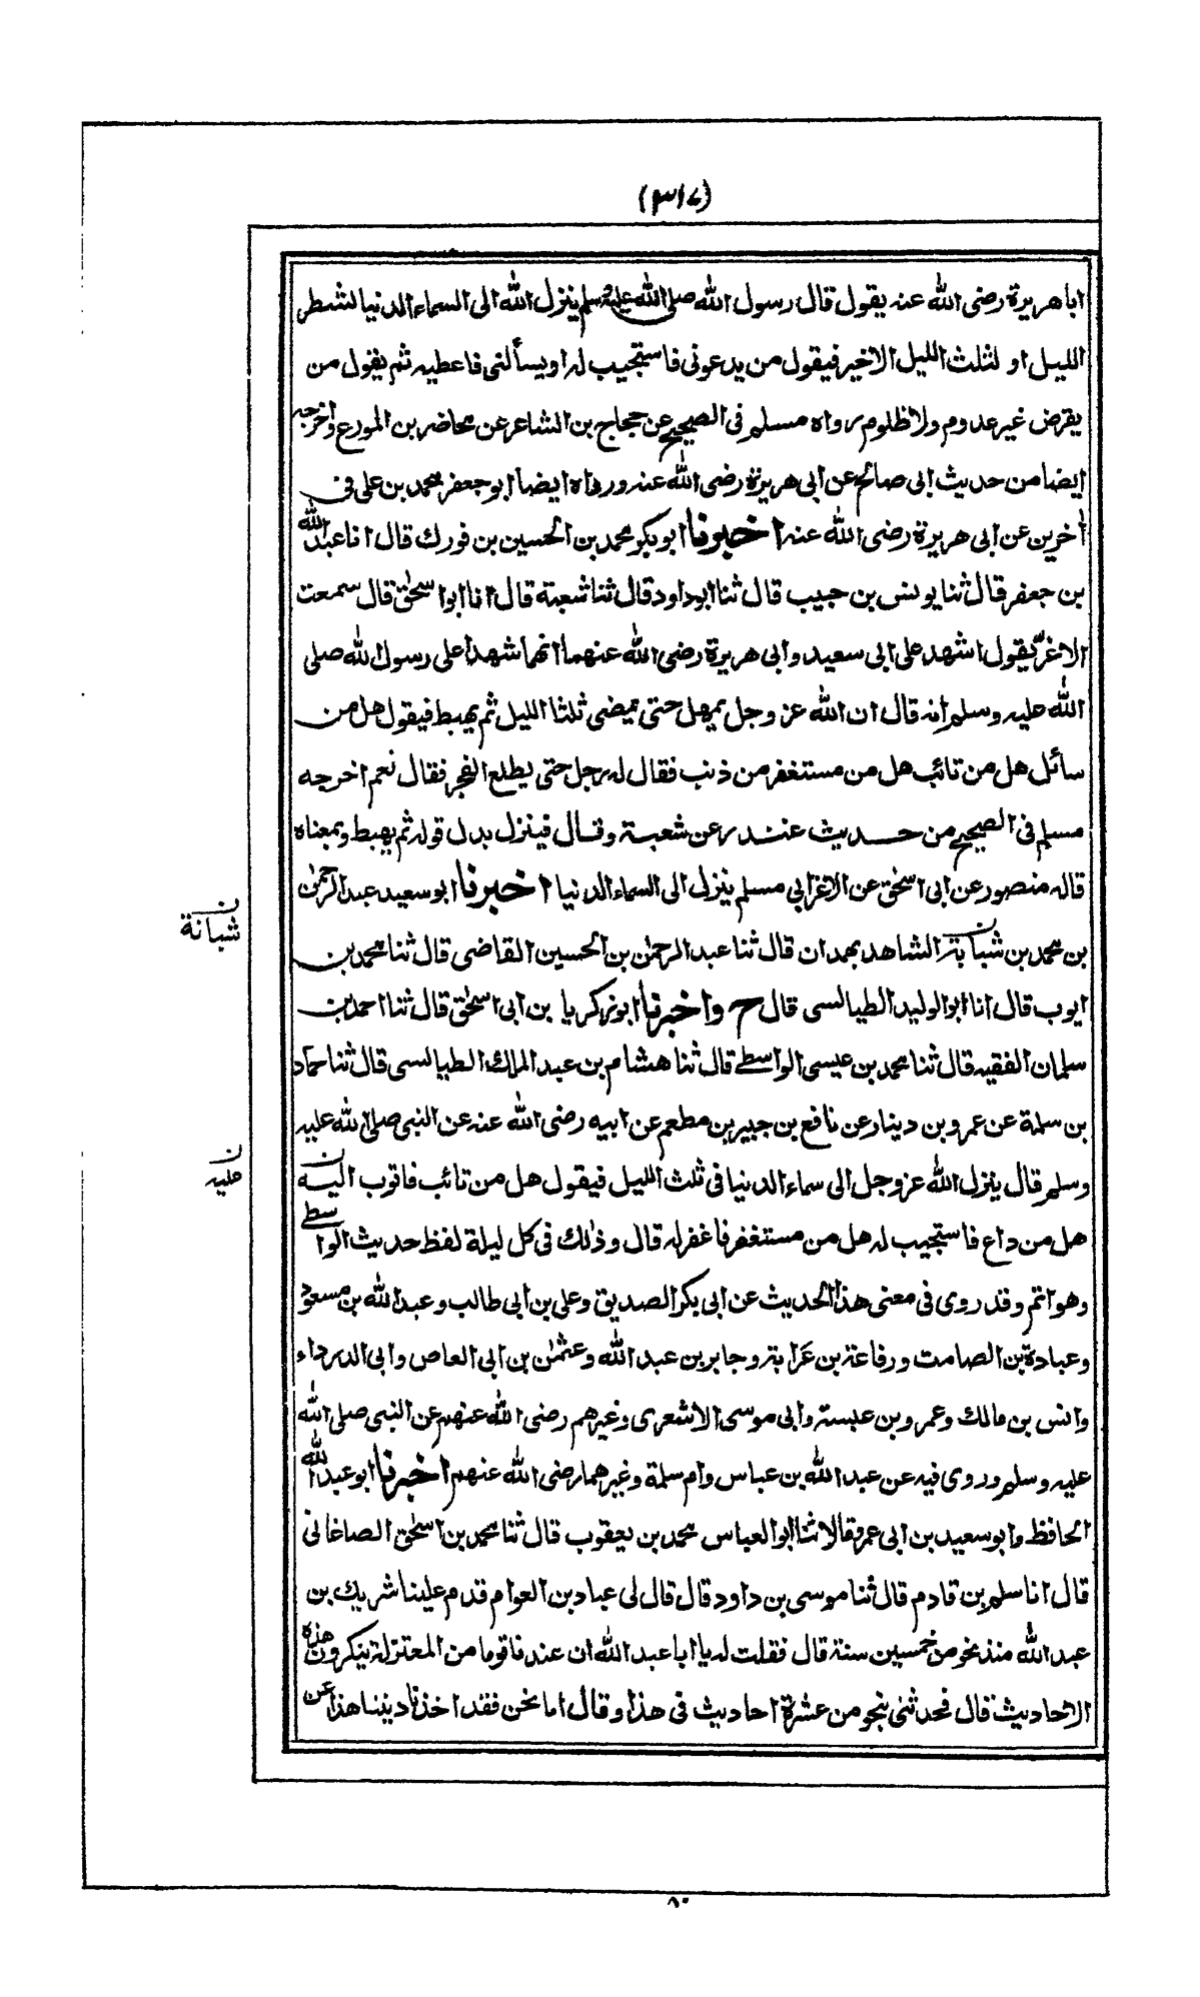 (٣١٧)
ابا هريرة رضى الله عنه يقول قال رسول الله صلى الله عليه وسلم ينزل الله الى السماء الدنيا لشطر
الليل او لثلث الليل الاخير فيقول من يدعونى فاستجيب له او يسألنى فاعطيه ثم يقول من
يقرض غير عدوم ولا ظلوم رواه مسلم فى الصحيح عن حجاج بن الشاعر عن محاضر بن المورع واخرجه
ايضا من حديث ابى صالح عن ابى هريرة رضى الله عنه ورواه ايضا ابو جعفر محمد بن على فى
أخرين عن ابى هريرة رضى الله عنه اخبرنا ابو بكر محمد بن الحسين بن فورك قال انا عبد الله
بن جعفر قال ثنا يونس بن حبيب قال ثنا ابو داود قال ثنا شعبة قال انا ابو اسحٰق قال سمعت
الاغرّ يقول اشهد على ابى سعيد وابى هريرة رضى الله عنهما انهما شهدا على رسول الله صلى
الله عليه وسلم انه قال ان الله عز وجل يمهل حتى يمضى ثلثا الليل ثم يهبط فيقول هل من
سائل هل من تائب هل من مستغفر من ذنب فقال له رجل حتى يطلع الفجر فقال نعم اخرجه
مسلم فى الصحيح من حديث غندر عن شعبة وقال فينزل بدل قوله ثم يهبط وبمعناه
قاله منصور عن ابى اسحٰق عن الاغر ابى مسلم ينزل الى السماء الدنيا اخبرنا ابو سعيد عبد الرحمٰن
بن محمد بن شبابة الشاهد بهمدان قال ثنا عبد الرحمٰن بن الحسين القاضى قال ثنا محمد بن
ن شبانة
ايوب قال انا ابو الوليد الطيالسى قال ح واخبرنا ابو زكريا بن ابى اسحٰق قال ثنا احمد بن
سلمان الفقيه قال ثنا محمد بن عيسى الواسطے قال ثنا هشام بن عبد الملك الطيالسى قال ثنا حماد
بن سلمة عن عمرو بن دينار عن نافع بن جبير بن مطعم عن ابيه رضى الله عنه عن النبى صلى الله عليه
وسلم قال ينزل الله عز وجل الى سماء الدنيا فى ثلث الليل فيقول هل من تائب فاتوب اليه
ن عليه
هل من داع فاستجيب له هل من مستغفر فاغفر له قال وذٰلك فى كل ليلة لفظ حديث الواسطے
وهو اتم وقد روى فى معنى هذا الحديث عن ابى بكر الصديق وعلى بن ابى طالب وعبد الله بن مسعود
وعبادة بن الصامت ورفاعة بن عَرَابة وجابر بن عبد الله وعثمٰن بن ابى العاص وابى الدرداء
وانس بن مالك وعمرو بن عبسة وابى موسى الاشعرى وغيرهم رضى الله عنهم عن النبى صلى الله
عليه وسلم وروى فيه عن عبد الله بن عباس وام سلمة وغيرهما رضى الله عنهم اخبرنا ابو عبد الله
الحافظ وابو سعيد بن ابى عمرو قالا ثنا ابو العباس محمد بن يعقوب قال ثنا محمد بن اسحٰق الصاغانى
قال انا سلم بن قادم قال ثنا موسى بن داود قال قال لى عباد بن العوام قدم علينا شريك بن
عبد الله منذ نحو من خمسين سنة قال فقلت له يا ابا عبد الله ان عندنا قوما من المعتزلة ينكرون هذه
الاحاديث قال فحدثنى بنحو من عشرة احاديث فى هذا وقال اما نحن فقد اخذنا ديننا هذا عن
٨٠